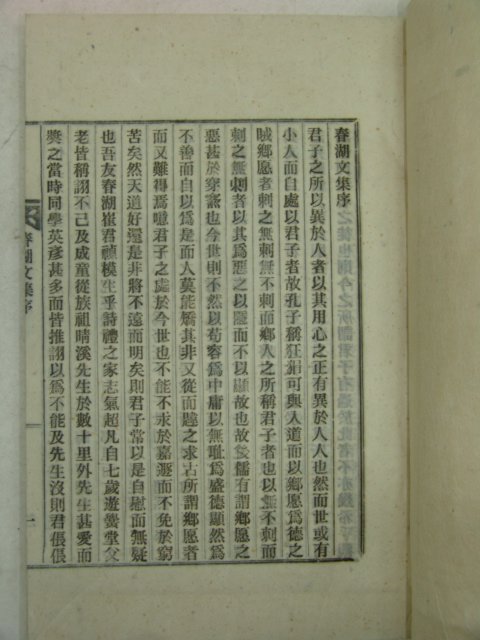 春湖文集序
君子之所以異於人者以其用心之正有異於人人也然而世或有
小人而自處以君子者故孔子稱狂狷可與人道而以鄉愿爲德之
賊鄉愿者刺之無刺無不刺而鄉人之所稱君子者也以無刺而
刺之無刺者以其爲惡之以隱而不以顯故也故先儒有謂鄉愿之
惡甚於穿窬也今世則不然以苟容爲中庸以無恥爲盛德顯然爲
不善而自以爲是而人莫能矯其非又從而韙之求古所謂鄉愿者
而又難得焉噫君子之處於今世也不能不永於嘉遯而不免於窮
苦矣然天道好還是非將不遠而明矣則君子常以是自慰而無疑
也吾友春湖崔君禎模生乎詩禮之家志氣超凡自七歲遊業堂父
老皆稱詡不已及成童從族祖晴溪先生於數十里外先生甚愛而
獎之當時同學英彥甚多而皆推詡以爲不能及先生沒則君倀倀
春湖文集序
一